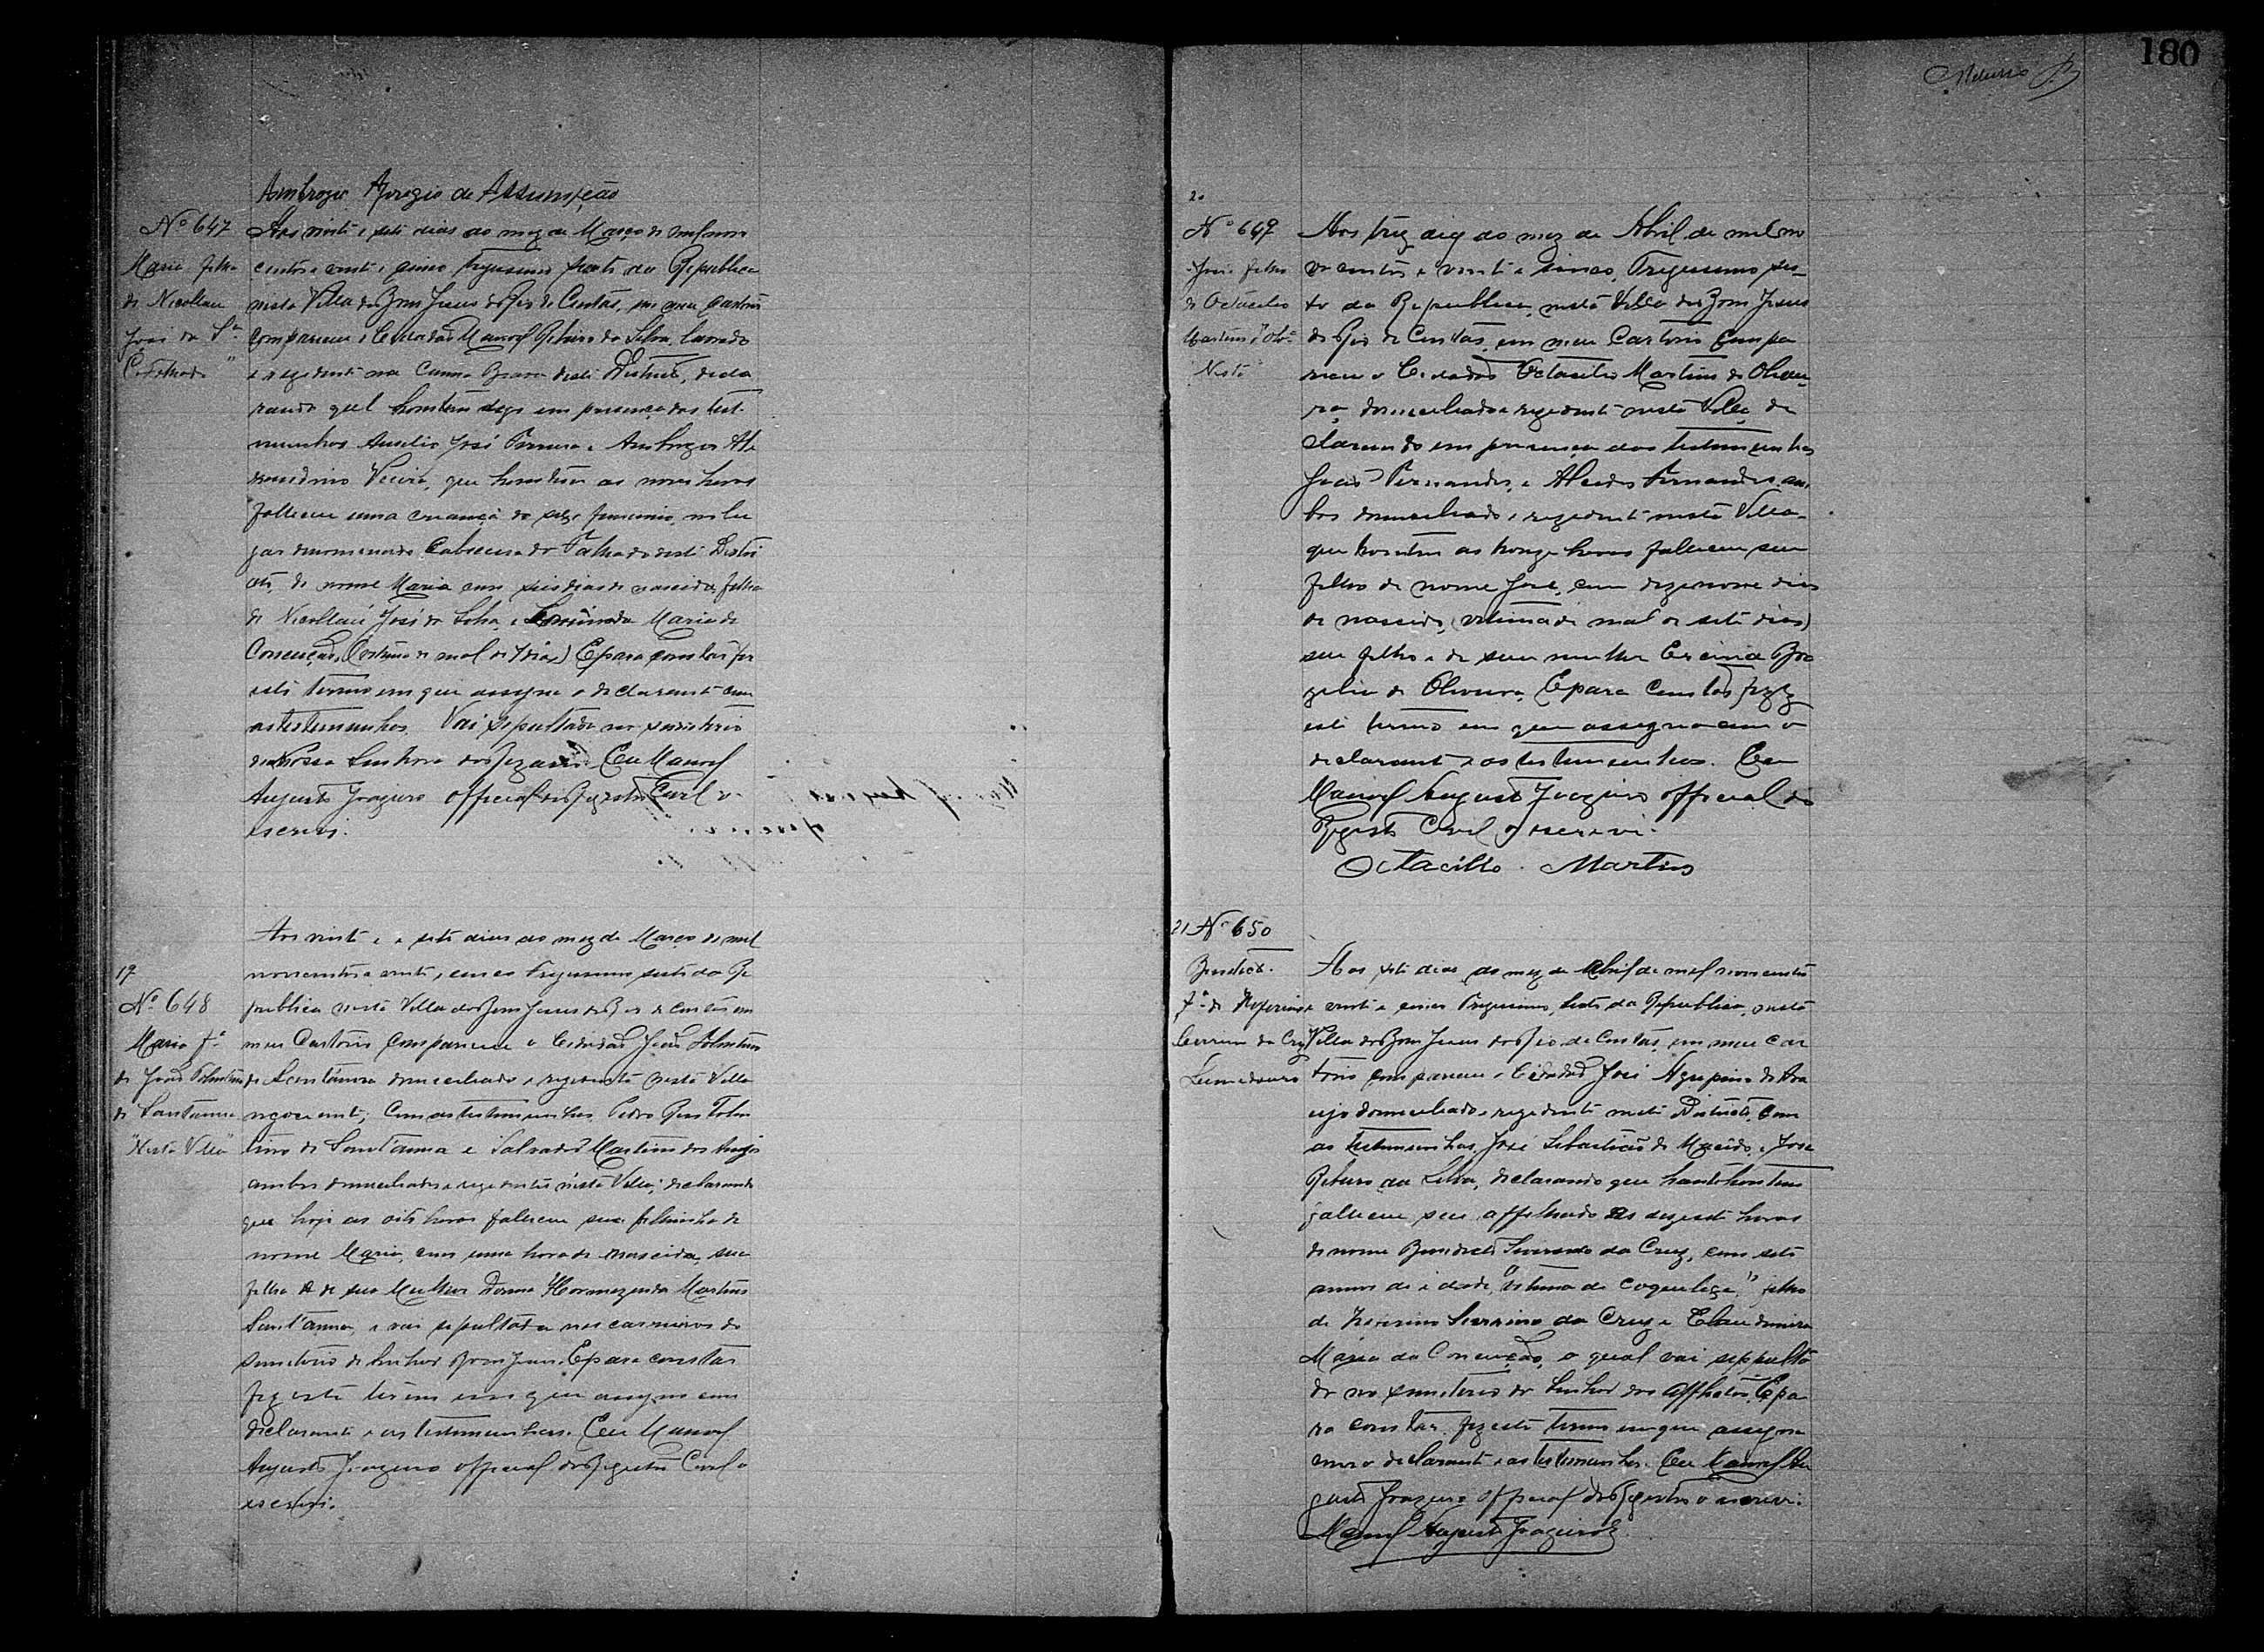 Ambrozio Aprigio de Assumpção
Nº 647
Maria filha
de Nicollau
José da Sª
Aos vinte e sete dias do mez de Março de mil nove
centos e vinte e cinco trigesimo sexto da Republica
nesta Villa do Bom Jesus do Rio de Contas, em meu Cartorio
compareceu o Cidadão Manoel Ribeiro da Silva, lavrador
e rezidente na Canna Brava deste Districto, decla
rando que hontem digo em presença das test
munhas Aurelio José Ferreira e Ambrozio
Vieira, que hontem as nove horas
falleceu uma creança do sexo feminino no lu
gar denominado Cabeceira do Talhado deste Distri
cto, de nome Maria com seis dias de nascida, filha
de Nicollau José da Silva, e Maria da
Conceição, (victima de mal de 7 dias) E para constar fiz
este termo em que assigna o declarante com
as testemunhas. Vai sepultada no cemiterio
de Nossa Senhora do Rozario. Eu Manoel
Augusto Joazeiro official do Registro Civil o
escrevi.
19
Nº 648
Maria fª
de João Tolentino
de Sant'anna
"Nesta Villa"
Aos vinte e sete dias do mez de Março de mil
novecentos e vinte e cinco Trigesimo sexto da Re
publica nesta Villa do Bom Jesus do Rio de Contas em
meu Cartorio compareceu o Cidadão João Tolentino
de Sant'anna domiciliado e rezidente nesta Villa
negociante; Com as testemunhas Pedro Tolen
tino de Sant'anna e Salvador Martins dos Anjos
ambos domiciliados e rezidentes nesta Villa; declarando
que hoje as oito horas falleceu sua filhinha de
nome Maria, com uma hora de nascida, sua
filha e de sua Mulher Donna Hormezinda Martins
Sant'anna, e vai sepultada nos carneiros do
semiterio do Senhor Bom Jesus. E para constar
fiz este termo em que assigna com
declarante e as testemunhas. Eu Manoel
Augusto Joazeiro official do Registro Civil o
escrevi.
180
20
Nº 649
José filho
de Octacilio
Martins d'Olivª
Nesta
Aos trez dias do mez de Abril de mil no
vecentos e vinte e cinco, Trigesimo sex
to da Republica, nesta Villa do Bom Jesus
do Rio de Contas, em meu Cartorio compa
receu o Cidadão Octacilio Martins de Olivei
ra, domiciliado e rezidente nesta Villa, de
clarando em presença das testemunhas
João Fernandes, e Alcides Fernandes, am
bos domiciliado e rezidente nesta Villa
que hontem as honze horas falleceu seu
filho de nome José, com dezenove dias
de nascido, (victima de mal de sete dias)
seu filho e de sua mulher
de Oliveira, E para constar fiz
este termo em que assigna com o
declarante e as testemunhas. Eu
Manoel Augusto Joazeiro official do
Registro Civil o escrevi.
Octacilio Martins
21 Nº 650
Benedicto
fº de
Severino da Cruz
Aos sete dias do mez de Abril de mil novecentos
e vinte e cinco Trigesimo sexto da Republica, nesta
Villa do Bom Jesus do Rio de Contas, em meu Car
torio compareceu o Cidadão José Agripino de Ara
ujo domiciliado e rezidente neste Districto, Com
as testemunhas José Sebastião de Macêdo, e José
Ribeiro da Silva, declarando que hantehontem
falleceu seu affilhado as dezesete horas
de nome Benedicto Severino da Cruz, com sete
annos de idade, "victima de coqueluçe", filho
de Severino da Cruz e Claudimira
Maria da Conceição, o qual vai sepulta
do no semiterio do Senhor dos Afflictos. E pa
ra constar fiz este termo em que assigna
com o declarante e as testemunhas. Eu Manoel Au
gusto Joazeiro official do Registro o escrevi.
Manoel Augusto Joazeiro